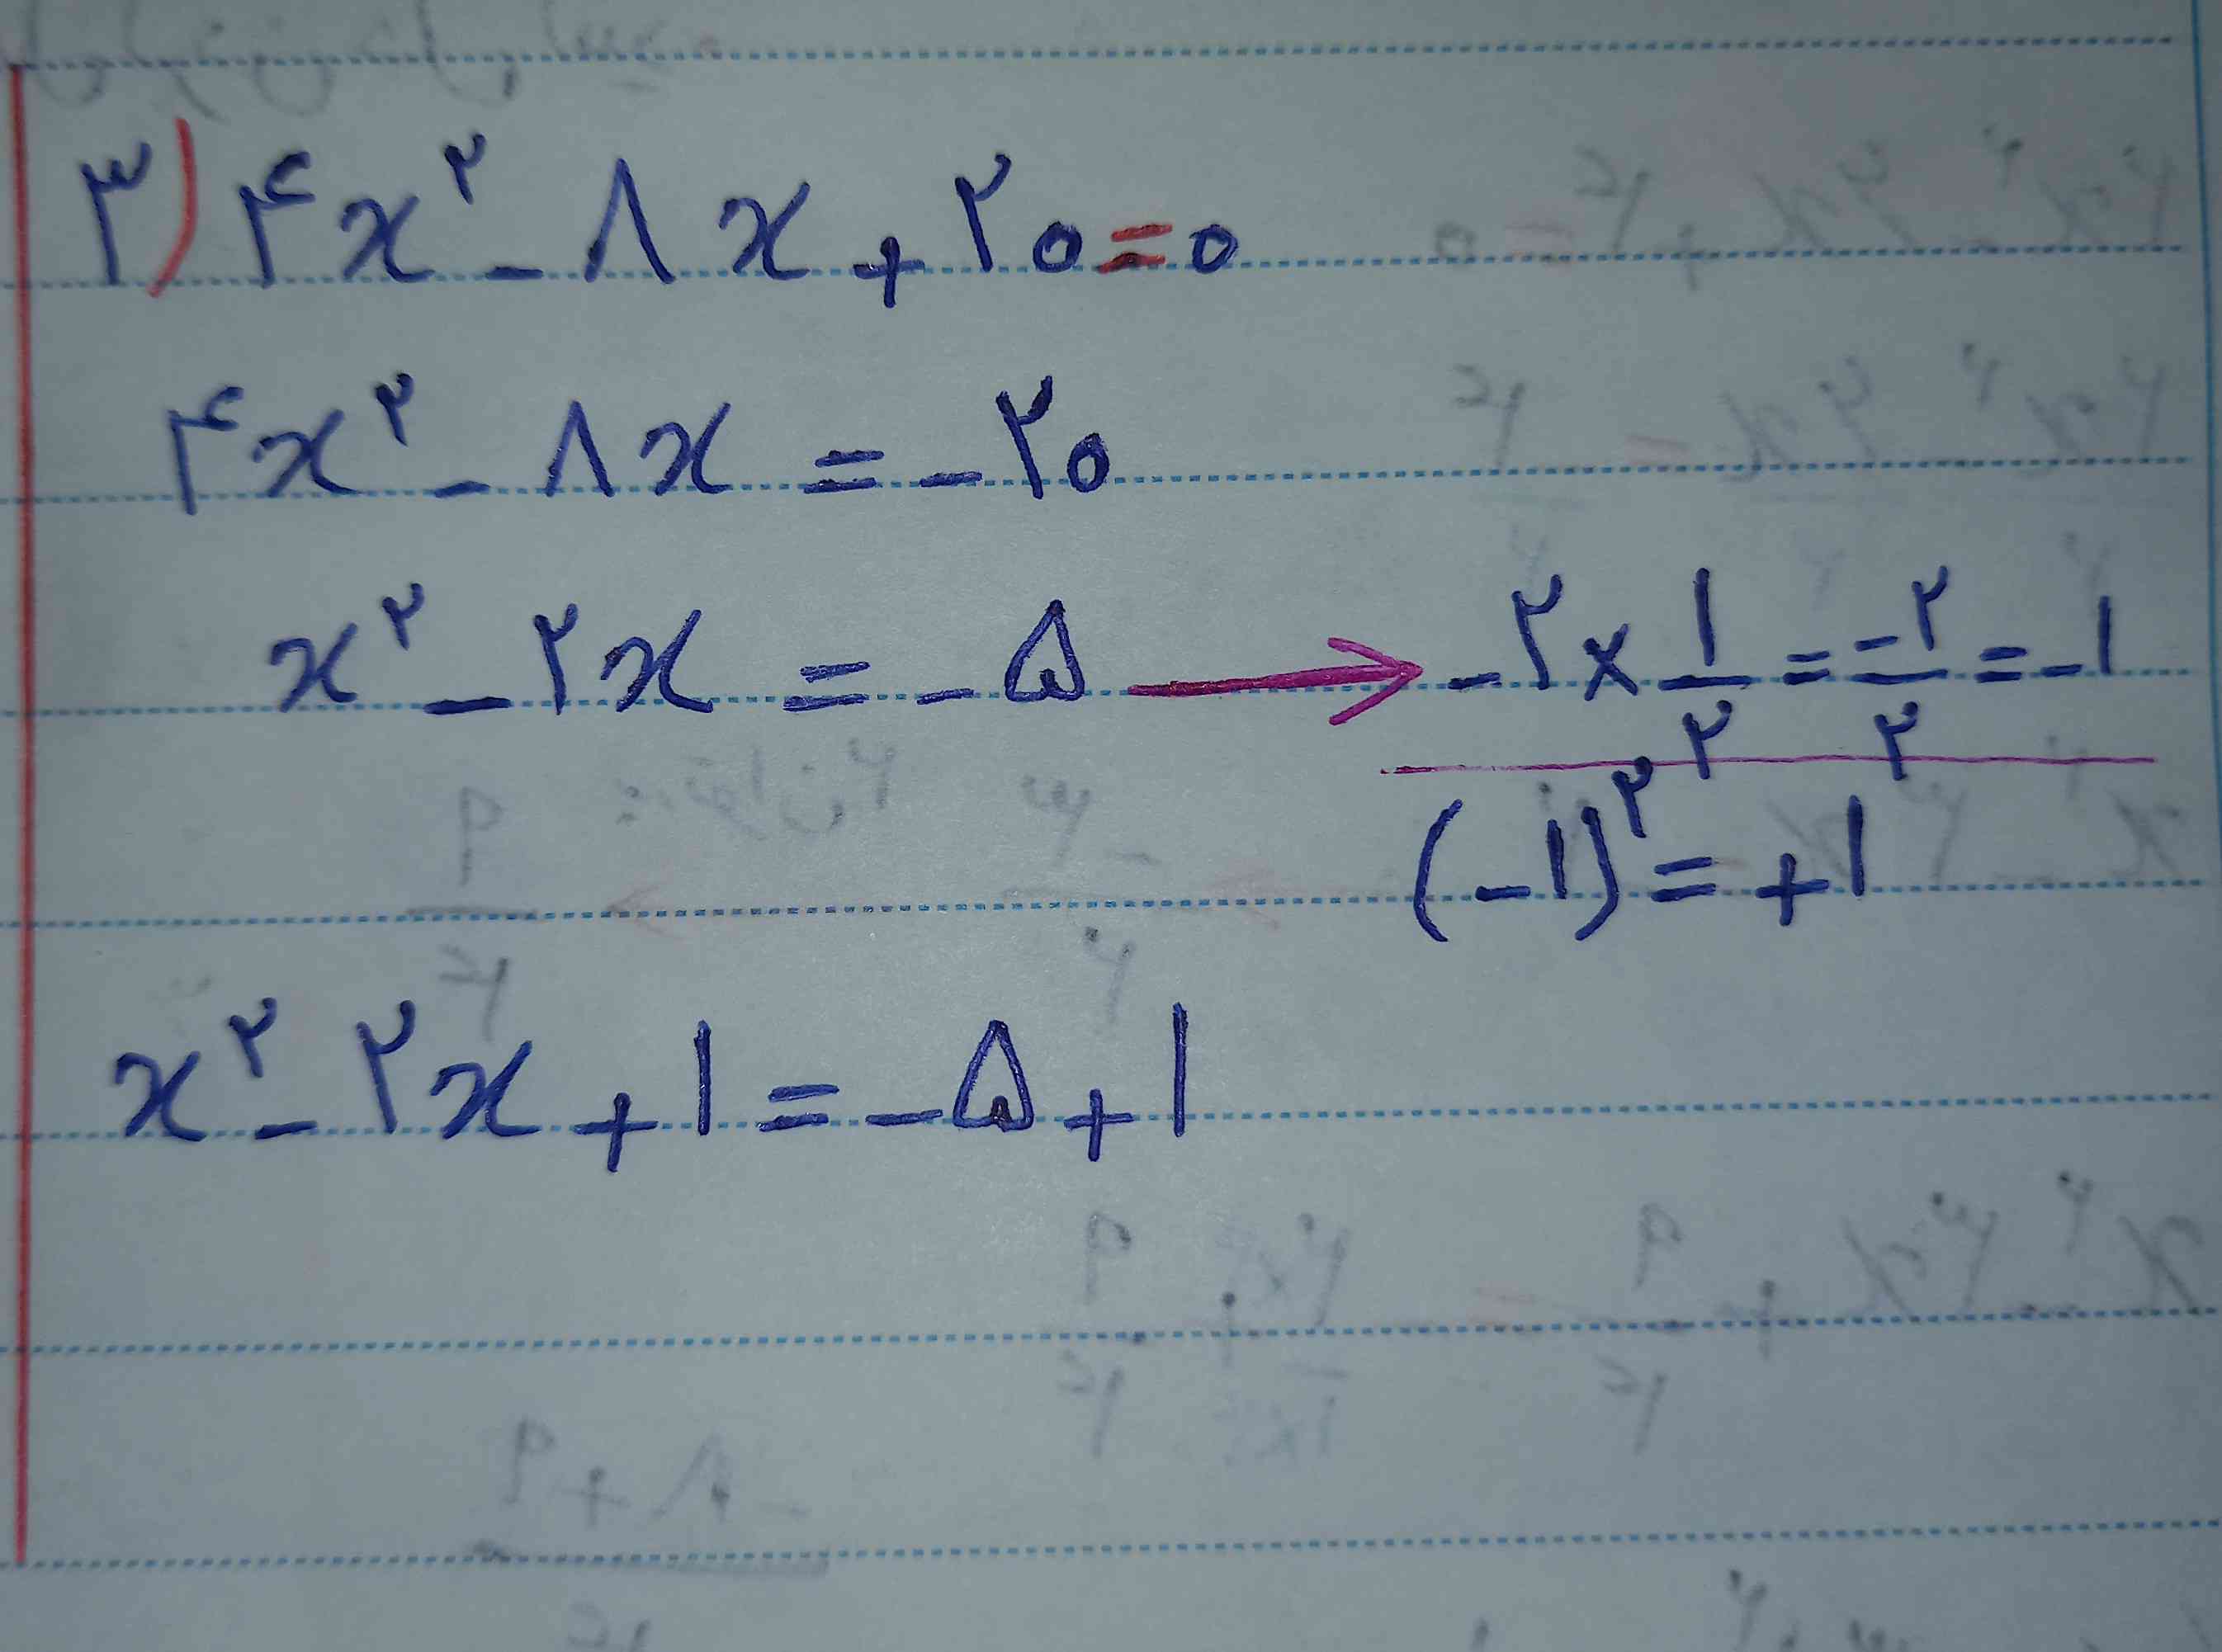 ۳) ۴x² - ۸x + ۲۰ = ۰
۴x² - ۸x = -۲۰
x² - ۲x = -۵ → -۲ × ۱/۲ = -۲/۲ = -۱
(-۱)² = +۱
x² - ۲x + ۱ = -۵ + ۱